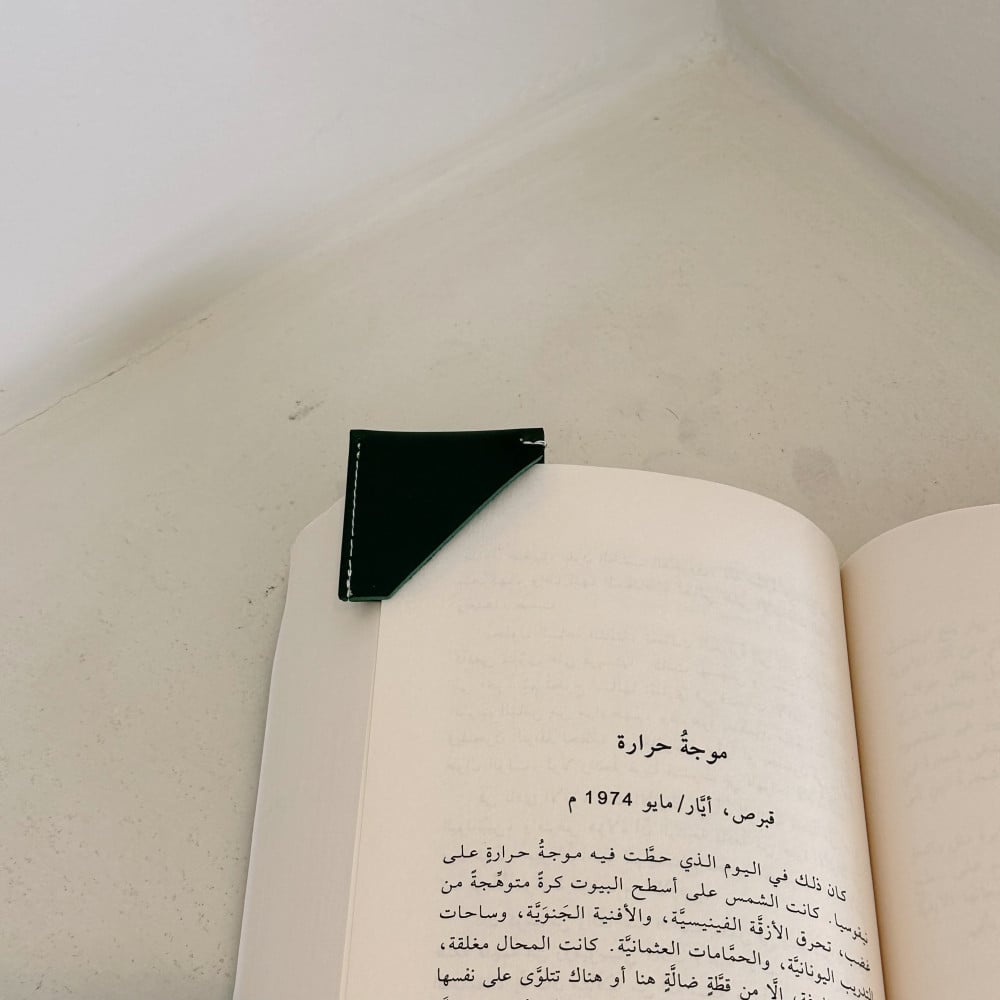 موجةُ حرارة
قبرص، أيَّار/مايو 1974 م
كان ذلك في اليوم الذي حطَّت فيه موجةُ حرارةٍ على
نيقوسيا. كانت الشمس على أسطح البيوت كرةً متوهِّجةً من
غضب، تحرق الأزقَّة الفينيسيَّة، والأفنية الجَنوَيَّة، وساحات
التدريب اليونانيَّة، والحمَّامات العثمانيَّة. كانت المحال مغلقة،
إلَّا من قطَّةٍ ضالَّةٍ هنا أو هناك تتلوَّى على نفسها